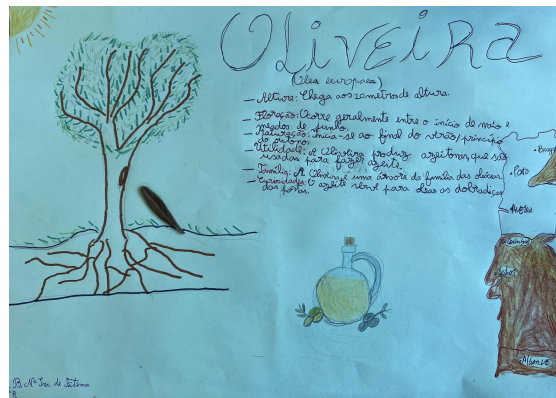 OLIVEIRA
(Olea europaea)
— Altura: Chega aos 20 metros de altura.
— Floração: Ocorre geralmente entre o início de maio e
meados de junho.
— Maturação: Inicia-se ao final do verão/princípio
do outono.
— Utilidade: A Oliveira produz azeitonas, que são
usadas para fazer azeite.
— Família: A Oliveira é uma árvore da família das oleáceas.
— Curiosidades: O azeite serve para olear as dobradiças
das portas.
Porto
Aveiro
Coimbra
Algarve
de Fátima